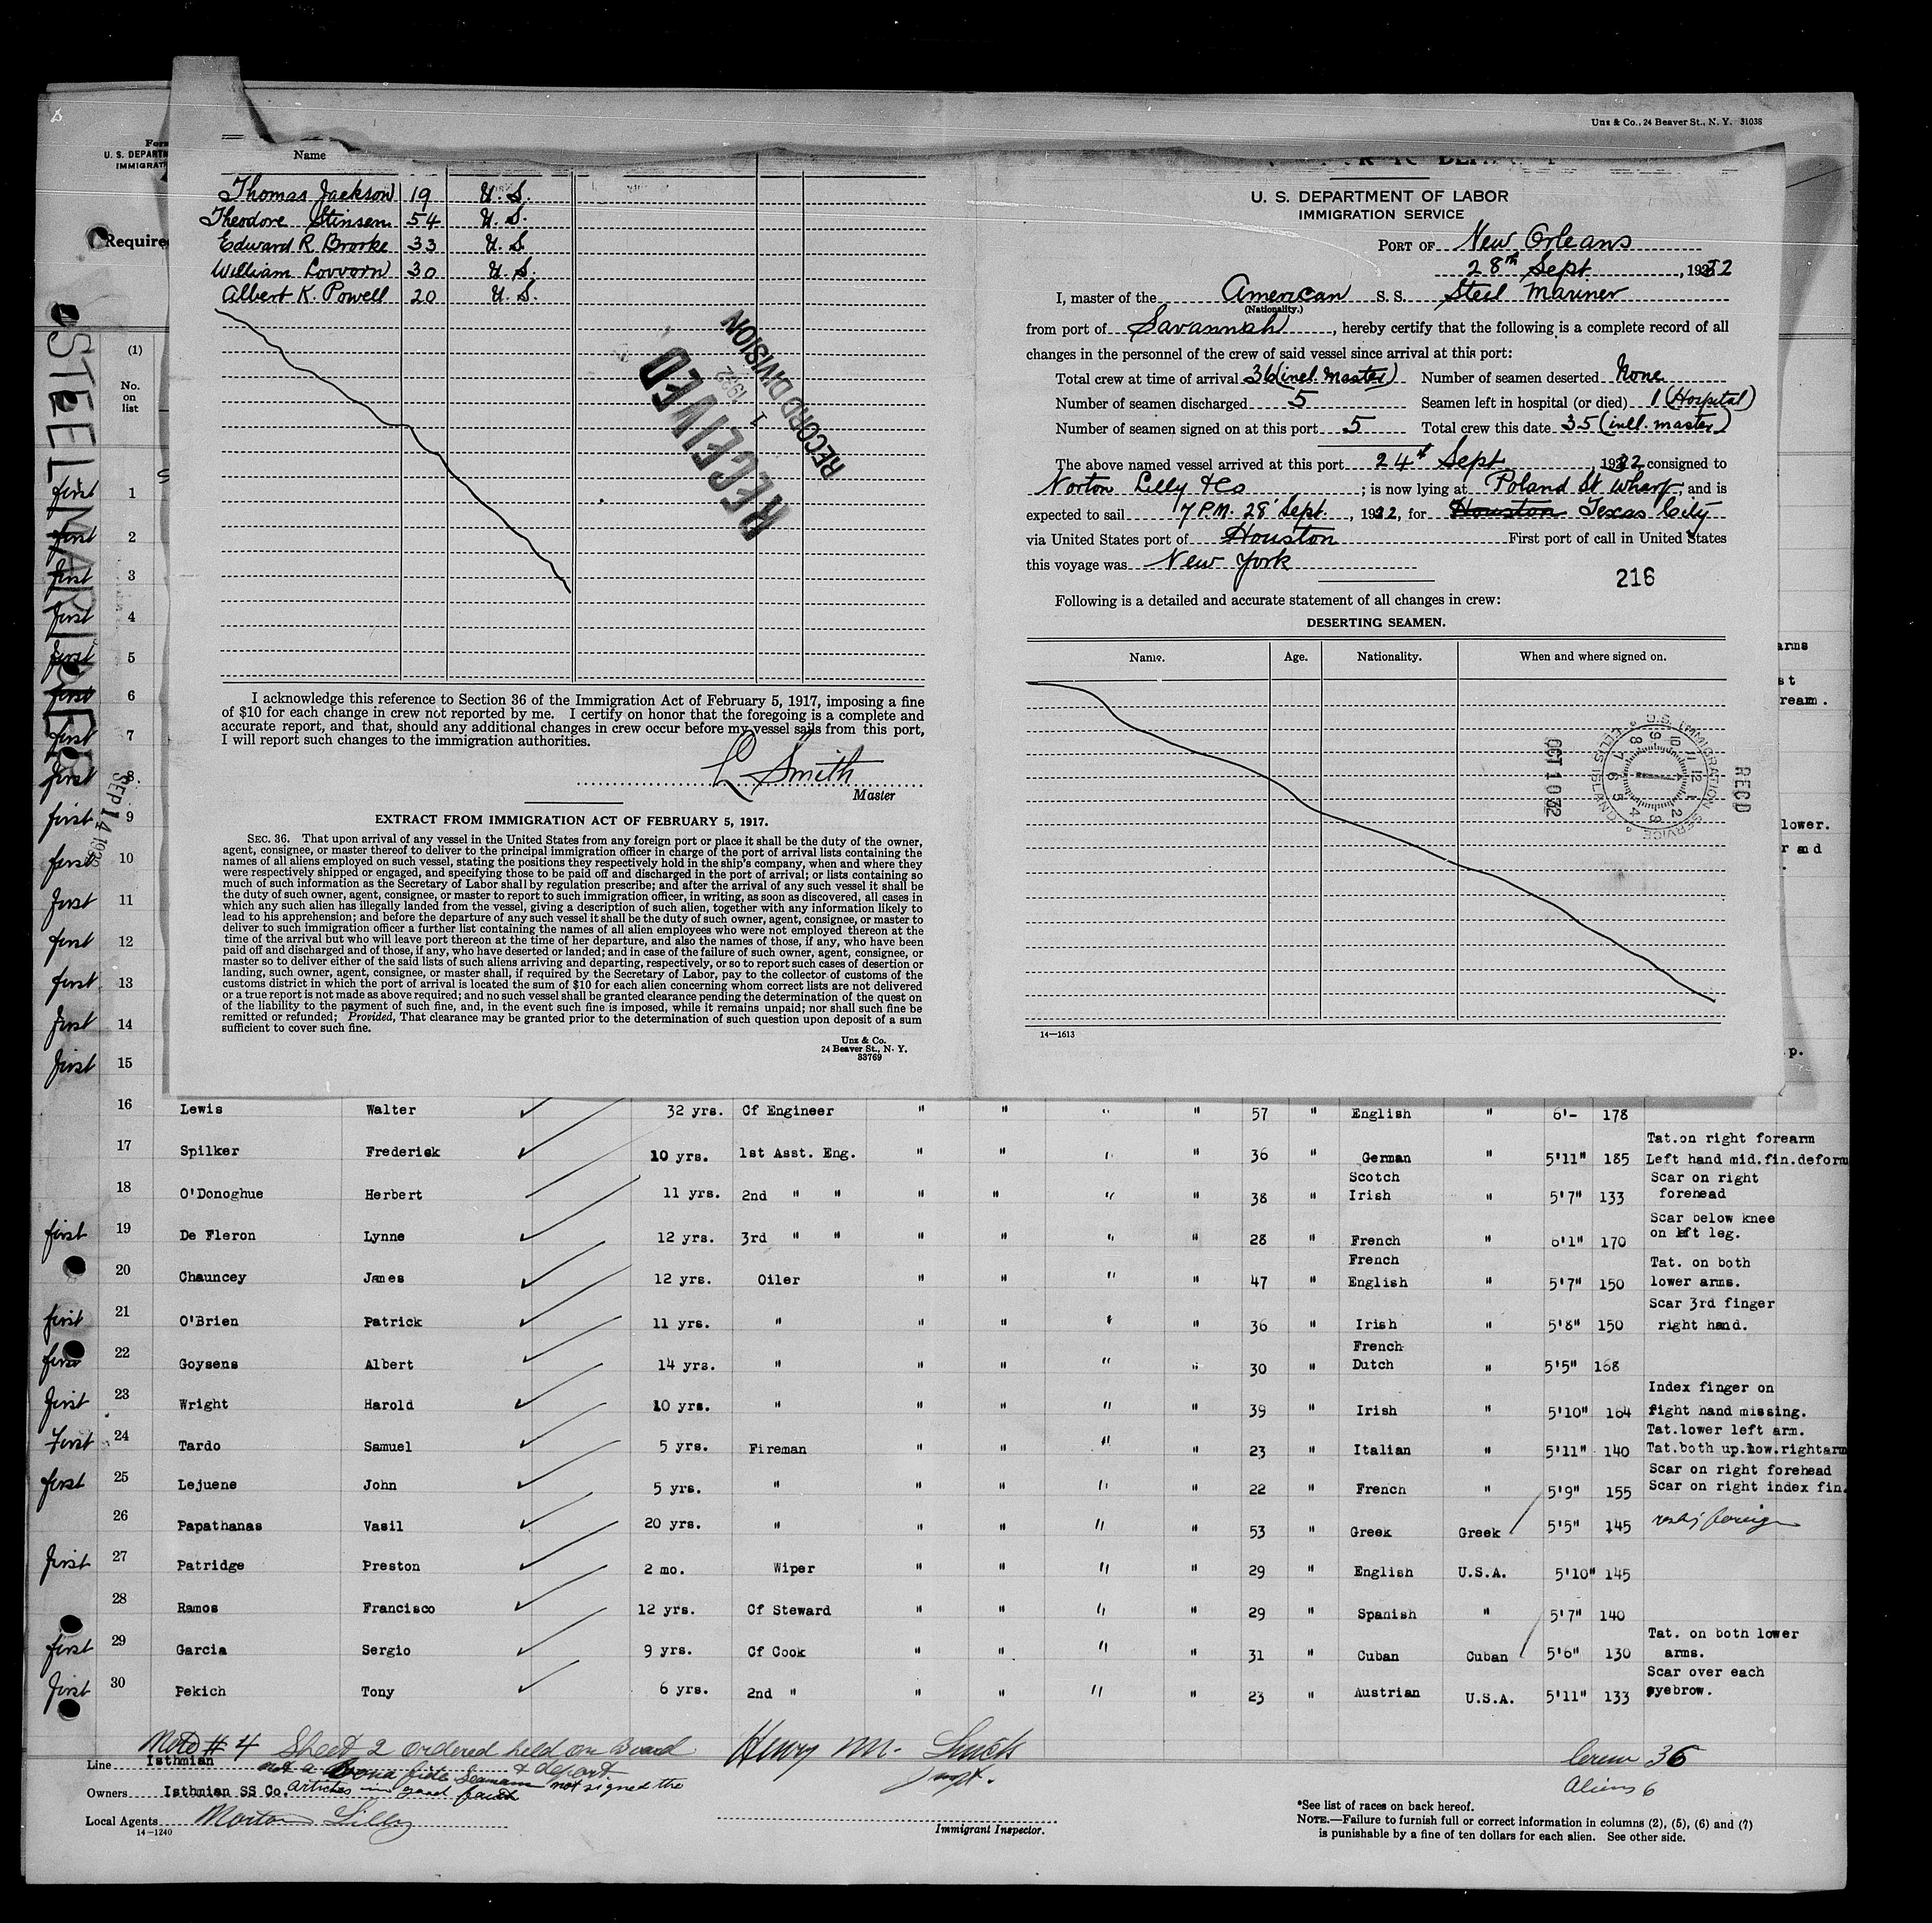 Unz & Co., 24 Beaver St., N. Y. 31038
U. S. DEPARTM
IMMIGRAT
Require
STEEL MARINER
Name
Thomas Jackson 19 U. S.
Theodore Stinsen 54 U. S.
Edward R. Brooke 33 U. S.
William Lovvorn 30 U. S.
Albert K. Powell 20 U. S.
RECEIVED
1 1932
RECORD DIVISION
I acknowledge this reference to Section 36 of the Immigration Act of February 5, 1917, imposing a fine
of $10 for each change in crew not reported by me. I certify on honor that the foregoing is a complete and
accurate report, and that, should any additional changes in crew occur before my vessel sails from this port,
I will report such changes to the immigration authorities.
L Smith
Master
EXTRACT FROM IMMIGRATION ACT OF FEBRUARY 5, 1917.
SEC. 36. That upon arrival of any vessel in the United States from any foreign port or place it shall be the duty of the owner,
agent, consignee, or master thereof to deliver to the principal immigration officer in charge of the port of arrival lists containing the
names of all aliens employed on such vessel, stating the positions they respectively hold in the ship's company, when and where they
were respectively shipped or engaged, and specifying those to be paid off and discharged in the port of arrival; or lists containing so
much of such information as the Secretary of Labor shall by regulation prescribe; and after the arrival of any such vessel it shall be
the duty of such owner, agent, consignee, or master to report to such immigration officer, in writing, as soon as discovered, all cases in
which any such alien has illegally landed from the vessel, giving a description of such alien, together with any information likely to
lead to his apprehension; and before the departure of any such vessel it shall be the duty of such owner, agent, consignee, or master to
deliver to such immigration officer a further list containing the names of all alien employees who were not employed thereon at the
time of the arrival but who will leave port thereon at the time of her departure, and also the names of those, if any, who have been
paid off and discharged and of those, if any, who have deserted or landed; and in case of the failure of such owner, agent, consignee, or
master so to deliver either of the said lists of such aliens arriving and departing, respectively, or so to report such cases of desertion or
landing, such owner, agent, consignee, or master shall, if required by the Secretary of Labor, pay to the collector of customs of the
customs district in which the port of arrival is located the sum of $10 for each alien concerning whom correct lists are not delivered
or a true report is not made as above required; and no such vessel shall be granted clearance pending the determination of the quest on
of the liability to the payment of such fine, and, in the event such fine is imposed, while it remains unpaid; nor shall such fine be
remitted or refunded; Provided, That clearance may be granted prior to the determination of such question upon deposit of a sum
sufficient to cover such fine.
Unz & Co.
24 Beaver St., N. Y.
33769
U. S. DEPARTMENT OF LABOR
IMMIGRATION SERVICE
PORT OF New Orleans
28th Sept, 1932
I, master of the American S. S. Steel Mariner
(Nationality.)
from port of Savannah, hereby certify that the following is a complete record of all
changes in the personnel of the crew of said vessel since arrival at this port:
Total crew at time of arrival 36 (incl. master) Number of seamen deserted None
Number of seamen discharged 5 Seamen left in hospital (or died) 1 (Hospital)
Number of seamen signed on at this port 5 Total crew this date 35 (incl. master)
The above named vessel arrived at this port 24th Sept 1932 consigned to
Norton Lilly & Co; is now lying at Poland St Wharf; and is
expected to sail 7 P.M. 28 Sept., 1932, for Houston Texas City
via United States port of Houston First port of call in United States
this voyage was New York
216
Following is a detailed and accurate statement of all changes in crew:
DESERTING SEAMEN.
Name. Age. Nationality. When and where signed on.
OCT 10 32
U.S. IMMIGRATION SERVICE ELLIS ISLAND
RECD
14—1613
(1)
No.
on
list
SEP 14 1932
first 1
first 2
first 3
first 4
first 5
first 6
first 7
first 8
first 9
first 10
first 11
first 12
first 13
first 14
first 15
arms
st
ream.
lower.
r and
p.
16 Lewis Walter 32 yrs. Cf Engineer " " " " 57 " English " 6'- 178
17 Spilker Frederick 10 yrs. 1st Asst. Eng. " " " " 36 " German " 5'11" 185 Tat.on right forearm
Left hand mid.fin.deform
18 O'Donoghue Herbert 11 yrs. 2nd " " " " " " 38 " Scotch
Irish " 5'7" 133 Scar on right
forehead
first 19 De Fleron Lynne 12 yrs. 3rd " " " " " " 28 " French " 6'1" 170 Scar below knee
on left leg.
20 Chauncey James 12 yrs. Oiler " " " " 47 " French
English " 5'7" 150 Tat. on both
lower arms.
first 21 O'Brien Patrick 11 yrs. " " " " " 36 " Irish " 5'8" 150 Scar 3rd finger
right hand.
first 22 Goysens Albert 14 yrs. " " " " " 30 " French
Dutch " 5'5" 168
first 23 Wright Harold 10 yrs. " " " " " 39 " Irish " 5'10" 164 Index finger on
right hand missing.
First 24 Tardo Samuel 5 yrs. Fireman " " " " 23 " Italian " 5'11" 140 Tat.lower left arm.
Tat.both up.low.rightarm
first 25 Lejuene John 5 yrs. " " " " " 22 " French " 5'9" 155 Scar on right forehead
Scar on right index fin.
26 Papathanas Vasil 20 yrs. " " " " " 53 " Greek Greek 5'5" 145 foreign
first 27 Patridge Preston 2 mo. Wiper " " " " 29 " English U.S.A. 5'10" 145
28 Ramos Francisco 12 yrs. Cf Steward " " " " 29 " Spanish " 5'7" 140
first 29 Garcia Sergio 9 yrs. Cf Cook " " " " 31 " Cuban Cuban 5'6" 130 Tat. on both lower
arms.
first 30 Pekich Tony 6 yrs. 2nd " " " " " 23 " Austrian U.S.A. 5'11" 133 Scar over each
eyebrow.
Note # 4 Sheet 2 ordered held on Board
& deport
Line Isthmian not a Bona fide Seaman not signed the
Owners Isthmian SS Co. articles in good faith
Local Agents Norton Lilly
14—1240
Henry M.
Inspt.
Immigrant Inspector.
Crew 36
Aliens 6
*See list of races on back hereof.
NOTE.—Failure to furnish full or correct information in columns (2), (5), (6) and (7)
is punishable by a fine of ten dollars for each alien. See other side.